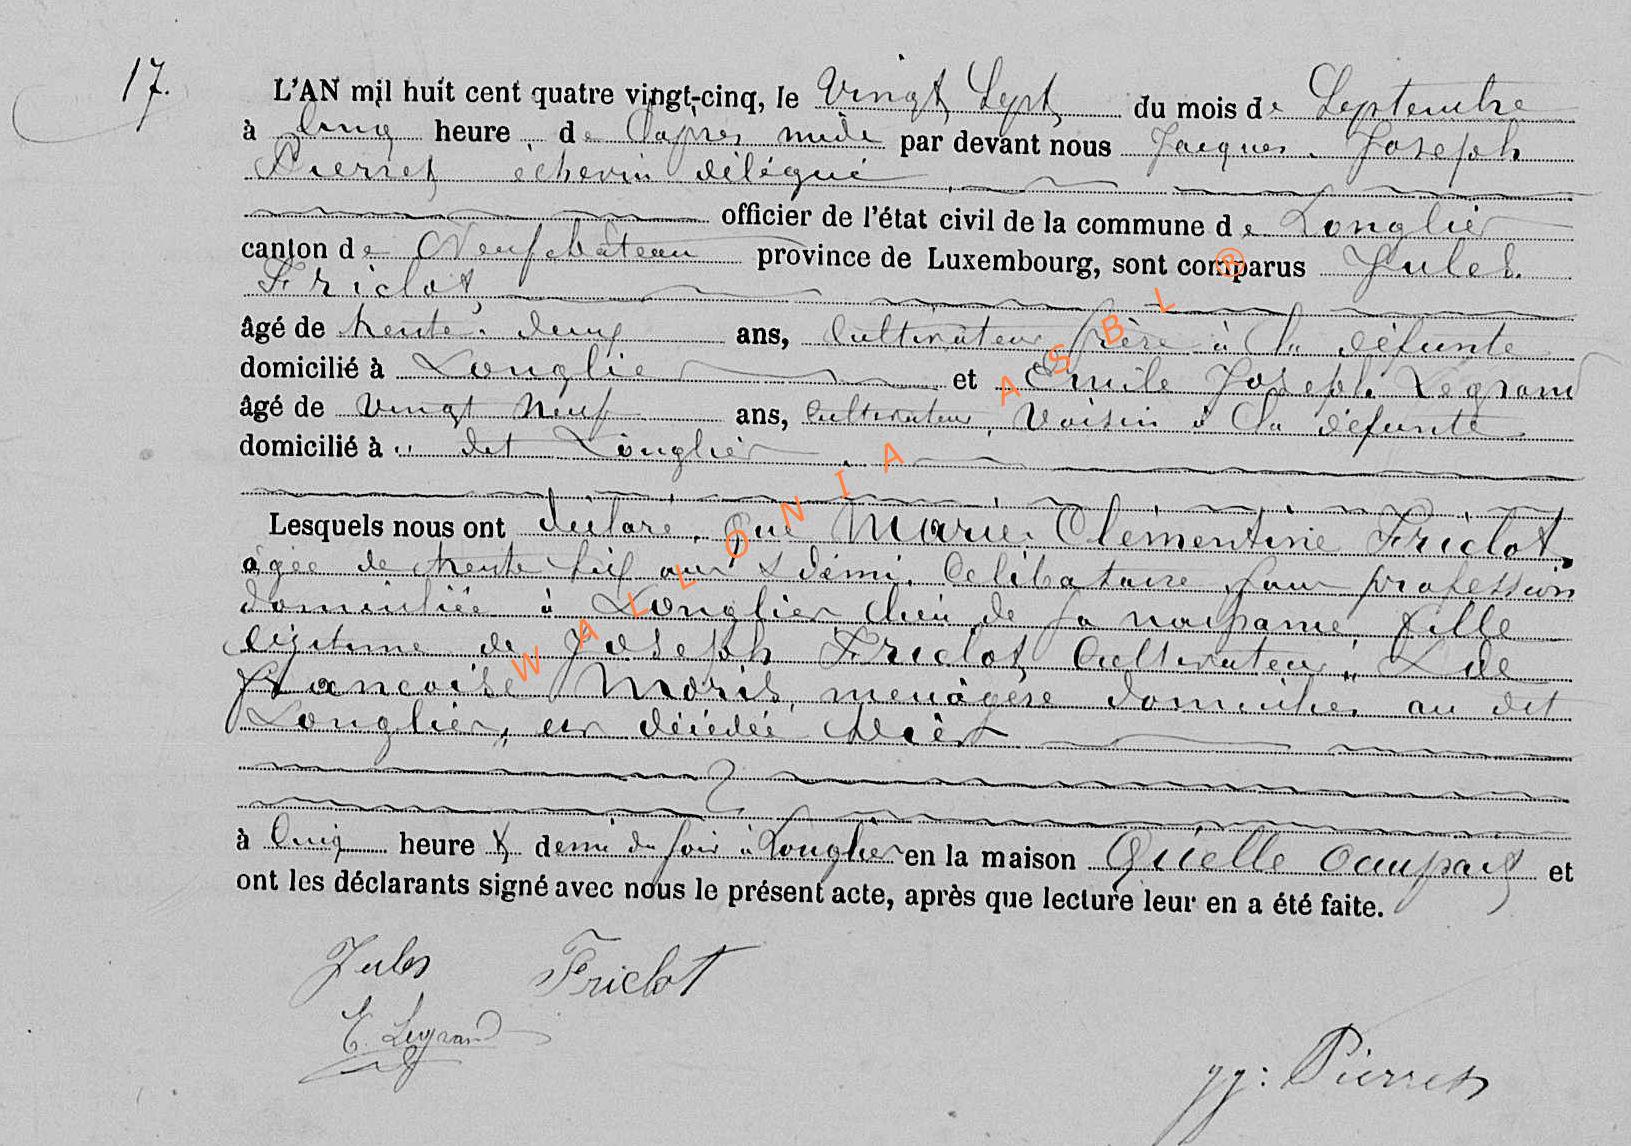 17.
L'AN mil huit cent quatre vingt-cinq, le Vingt Sept du mois de Septembre
à cinq heure de l'après midi par devant nous Jacques Joseph
Pierret échevin délégué
officier de l'état civil de la commune de Longlier
canton de Neufchâteau province de Luxembourg, sont comparus Jules
Friclot,
âgé de trente deux ans, Cultivateur frère à la défunte
domicilié à Longlier et Emile Joseph Legrand
âgé de vingt neuf ans, cultivateur, Voisin à la défunte
domicilié à u dit Longlier
Lesquels nous ont déclaré que Marie Clémentine Friclot,
agée de trente six ans & demi, Célibataire, sans profession
domiciliée à Longlier lieu de sa naissance, fille
légitime de Joseph Friclot Cultivateur & de
Francoise Moris, menâgère domiciliés au dit
Longlier, est décédée hier
à cinq heure & demi du soir à Longlier en la maison Qu'elle occupait et
ont les déclarants signé avec nous le présent acte, après que lecture leur en a été faite.
Jules Friclot
E. Legrand
JJ: Pierret
WALLONIA ASBL ®